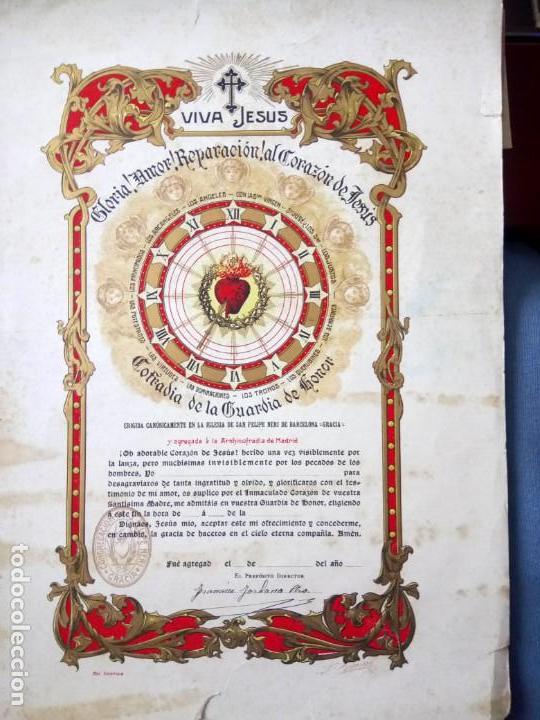 VIVA JESUS
Gloria! Amor! Reparación! al Corazón de Jesús
LOS ARCANGELES — LOS ANGELES — CON LA SMA VIRGEN
LOS PRINCIPADOS
LAS POTESTADES
LAS VIRTUDES
LAS DOMINACIONES
LOS TRONOS
LOS QUERUBINES
LOS SERAFINES
XII
I
II
III
IV
V
VI
VII
VIII
IX
X
XI
Cofradía de la Guardia de Honor
ERIGIDA CANÓNICAMENTE EN LA IGLESIA DE SAN FELIPE NERI DE BARCELONA (GRACIA)
y agregada à la Archicofradía de Madrid
¡Oh adorable Corazón de Jesús! herido una vez visiblemente por
la lanza, pero muchísimas invisiblemente por los pecados de los
hombres, Yo para
desagraviaros de tanta ingratitud y olvido, y glorificaros con el tes-
timonio de mi amor, os suplico por el Inmaculado Corazón de vuestra
Santísima Madre, me admitáis en vuestra Guardia de Honor, eligiendo
á este fin la hora de á de la
Dignáos, Jesús mío, aceptar este mi ofrecimiento y concederme,
en cambio, la gracia de haceros en el cielo eterna compañía. Amén.
Fué agregad el de del año
EL PREPÓSITO DIRECTOR
todocoleccion